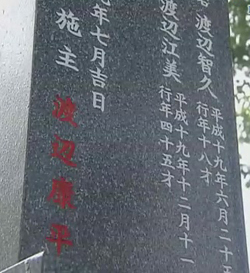 渡辺智久
平成十九年六月二十
行年十八才
渡辺江美
平成十九年十二月十一
行年四十五才
年七月吉日
施主 渡辺康平